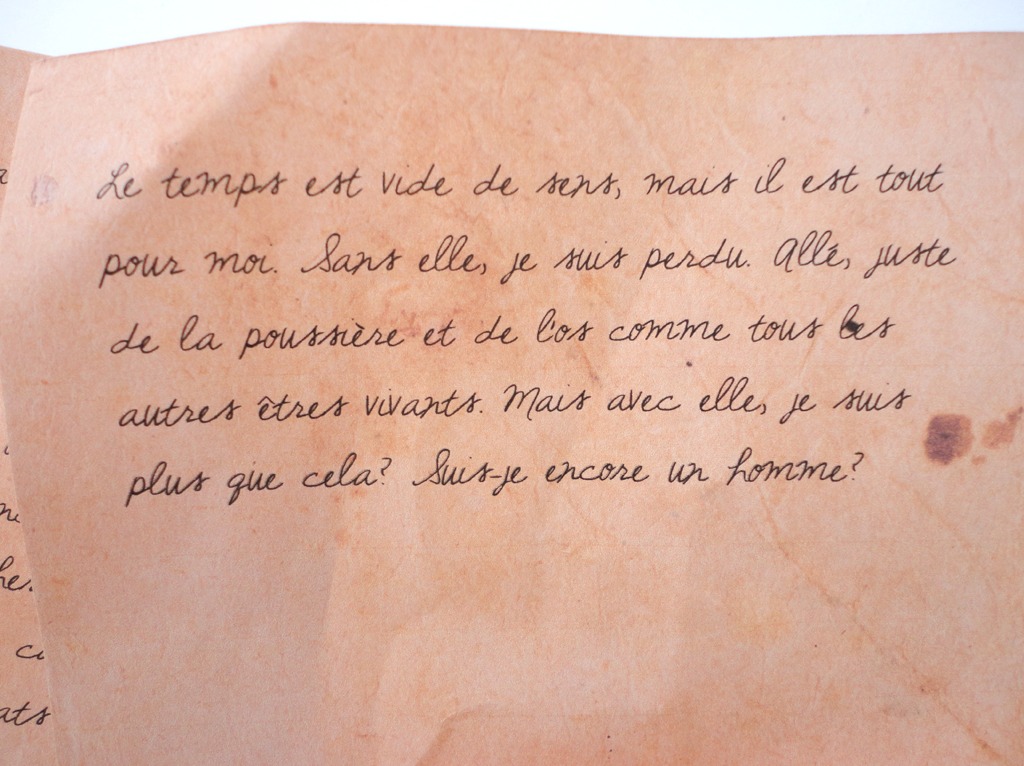 Le temps est vide de sens, mais il est tout
pour moi. Sans elle, je suis perdu. Allé, juste
de la poussière et de l'os comme tous les
autres êtres vivants. Mais avec elle, je suis
plus que cela? Suis-je encore un homme?
he.
ats